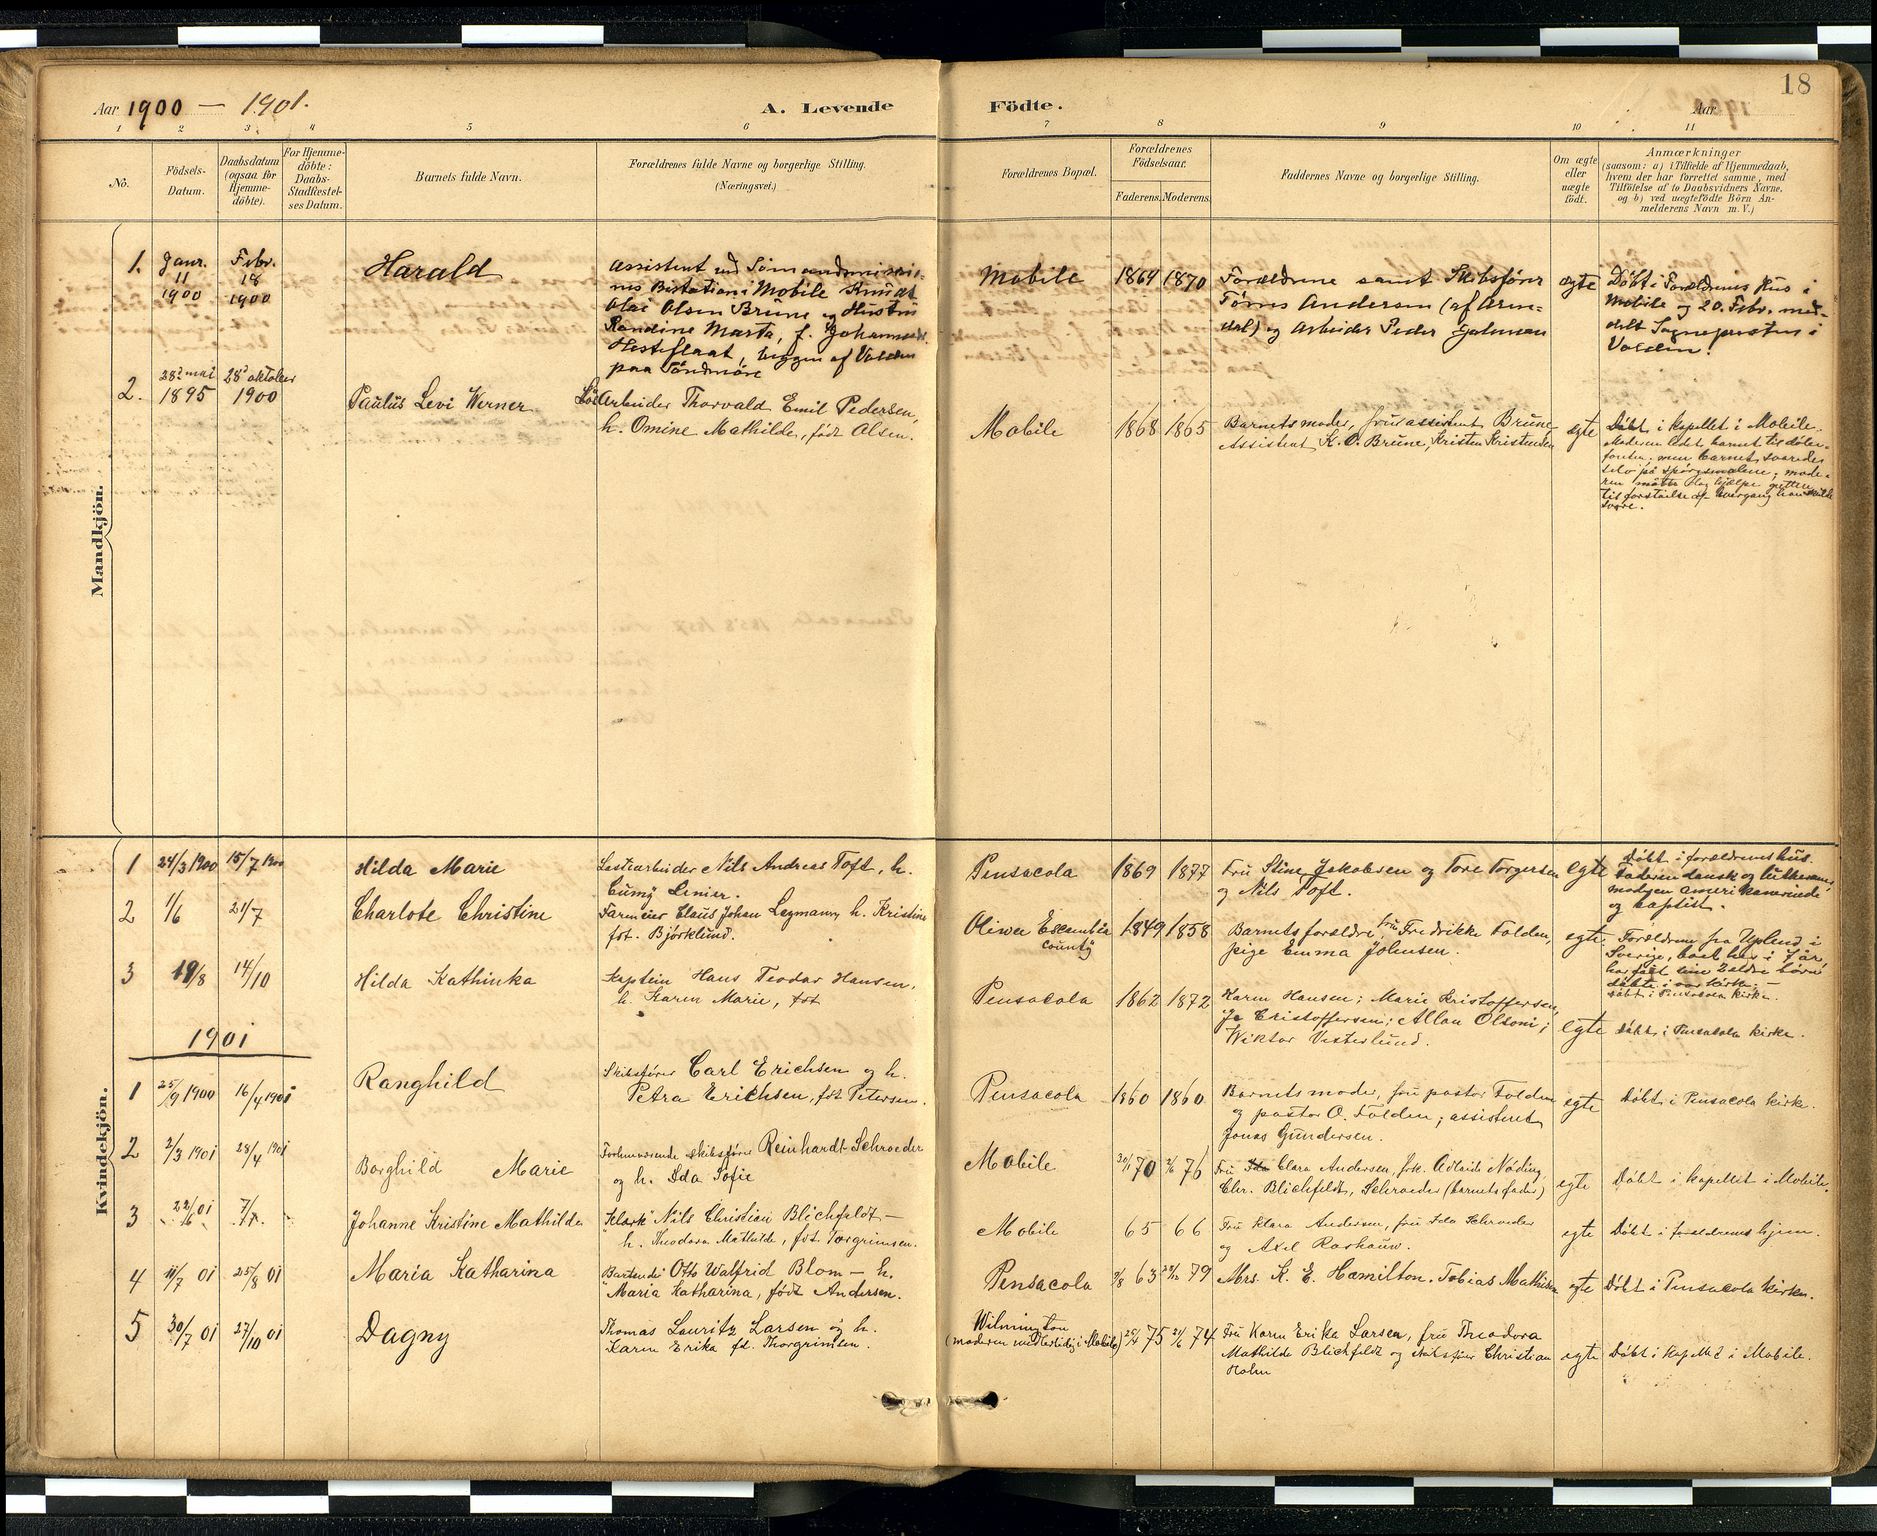 Aar 1900 — 1901.
A. Levende Födte.
Aar
18
1 2 3 4 5 6 7 8 9 10 11
No.
Födsels-Datum.
Daabsdatum (ogsaa for Hjemme-döbte).
For Hjemme-döbte: Daabs-Stadfæstel-ses Datum.
Barnets fulde Navn.
Forældrenes fulde Navne og borgerlige Stilling.
(Næringsvei.)
Forældrenes Bopæl.
Forældrenes Födselsaar.
Faderens. Moderens.
Faddernes Navne og borgerlige Stilling.
Om ægte eller uægte födt.
Anmærkninger
(saasom: a) i Tilfælde af Hjemmedaab, hvem der har forrettet samme, med Tilföielse af to Daabsvidners Navne, og b) ved uægtefödte Börn An-melderens Navn m. V.)
Mandkjön.
1. Janr. 11 1900
Febr. 18 1900
Harald
Assistent ved Sømandsmissio-
nens Bistation i Mobile Knut
Olai Olsen Brune og Hustru
Randine Marta, f. Johannesd.
Hesteflaat, begge af Volden
paa Söndmöre
Mobile 1864 1870
Forældrene samt Skibsfører
Tönnes Andersen (af Aren-
dal) og Arbeider Peder
ægte
Döbt i Forældrenes Hus i
Mobile og 20. Febr. med-
delt Sognepresten i
Volden.
2. 28de mai 1895
28de oktober 1900
Paulus Levi Werner
Arbeider Thorvald Emil Pedersen,
h. Omine Mathilde, født Olsen.
Mobile 1868 1865
Barnets moder, frue assistent Brune
Assistent K. O. Brune, Kristen Kristensen
ægte
Døbt i kapellet i Mobile.
Moderen ledet barnet til døbe-
fonten, men barnet svarede
selv på spørgsmålene; mode-
ren måtte dog hjælpe
til forståelse af
svare.
Kvindekjön.
1 24/3 1900 15/7 1900 Hilda Marie
Lastearbeider Nils Andreas Toft, h.
Linier.
Pensacola 1869 1877
Fru Stine Jakobsen og Tore Torgersen
og Nils Toft.
egte
Døbt i forældrenes hus.
Faderen dansk og lutheraner,
modren amerikanerinde
og baptist.
2 1/6 21/7 Charlote Christine
Farmeier Claus Johan Legmann, h. Kristine
fdt. Bjørklund.
Oliver Escambia County 1849 1858
Barnets forældre, fru Fredrikke Folden,
pige Emma Johnsen.
egte.
Forældrene fra Upland i
Sverige, boet her i år,
har fået sine 2 ældre børn
døbte i vor kirke. —
Døbt i Pensacola kirke.
3 19/8 14/10 Hilda Kathinka
Kaptein Hans Teodor Hansen,
h. Karen Marie, fdt
Pensacola 1862 1872
Karen Hansen; Marie Kristoffersen,
Cristoffersen; Allan Olsoni;
Wiktor Vesterlund.
egte
Døbt i Pensacola kirke.
1901
1 25/9 1900 16/4 1901 Ranghild
Skibsfører Carl Erichsen og h.
Petra Erichsen, fdt Petersen.
Pensacola 1860 1860
Barnets moder, fru pastor Folden
og pastor O. Folden; assistent
Jonas Gundersen.
egte
Døbt i Pensacola kirke.
2 2/3 1901 28/4 1901 Borghild Marie
Forhenværende skibsfører Reinhardt Schroeder
og h. Ida Sofie
Mobile 30/1 70 2/6 76
Fru Clara Andersen, frk. Adlaide Nøding,
Chr. Blichfeldt, Schroeder (barnets fader)
egte
Døbt i kapellet i Mobile.
3 22/6 01 7/7 Johanne Kristine Mathilde
"Klærk" Nils Christian Blichfeldt —
h. Theodora Mathilde, fdt. Torgrimsen.
Mobile 65 66
Fru Klara Andersen, fru Ida Schroeder
og Axel
egte
Døbt i forældrenes hjem.
4 11/7 01 25/8 01 Maria Katharina
Bartender Otto Walfrid Blom — h.
Maria Katharina, født Andersen.
Pensacola 9/8 63 22/12 79
Mrs. K. E. Hamilton. Tobias Mathisen
egte
Døbt i Pensacola kirken.
5 30/7 01 27/10 01 Dagny
Thomas Lauritz Larsen og h.
Karen Erika fd. Thorgrimsen.
Wilmington
(moderen midlertidig i Mobile) 75 74
Fru Karen Erika Larsen, fru Theodora
Mathilde Blichfeldt og skibsfører Christian
Holm
egte
Døbt i kapellet i Mobile.